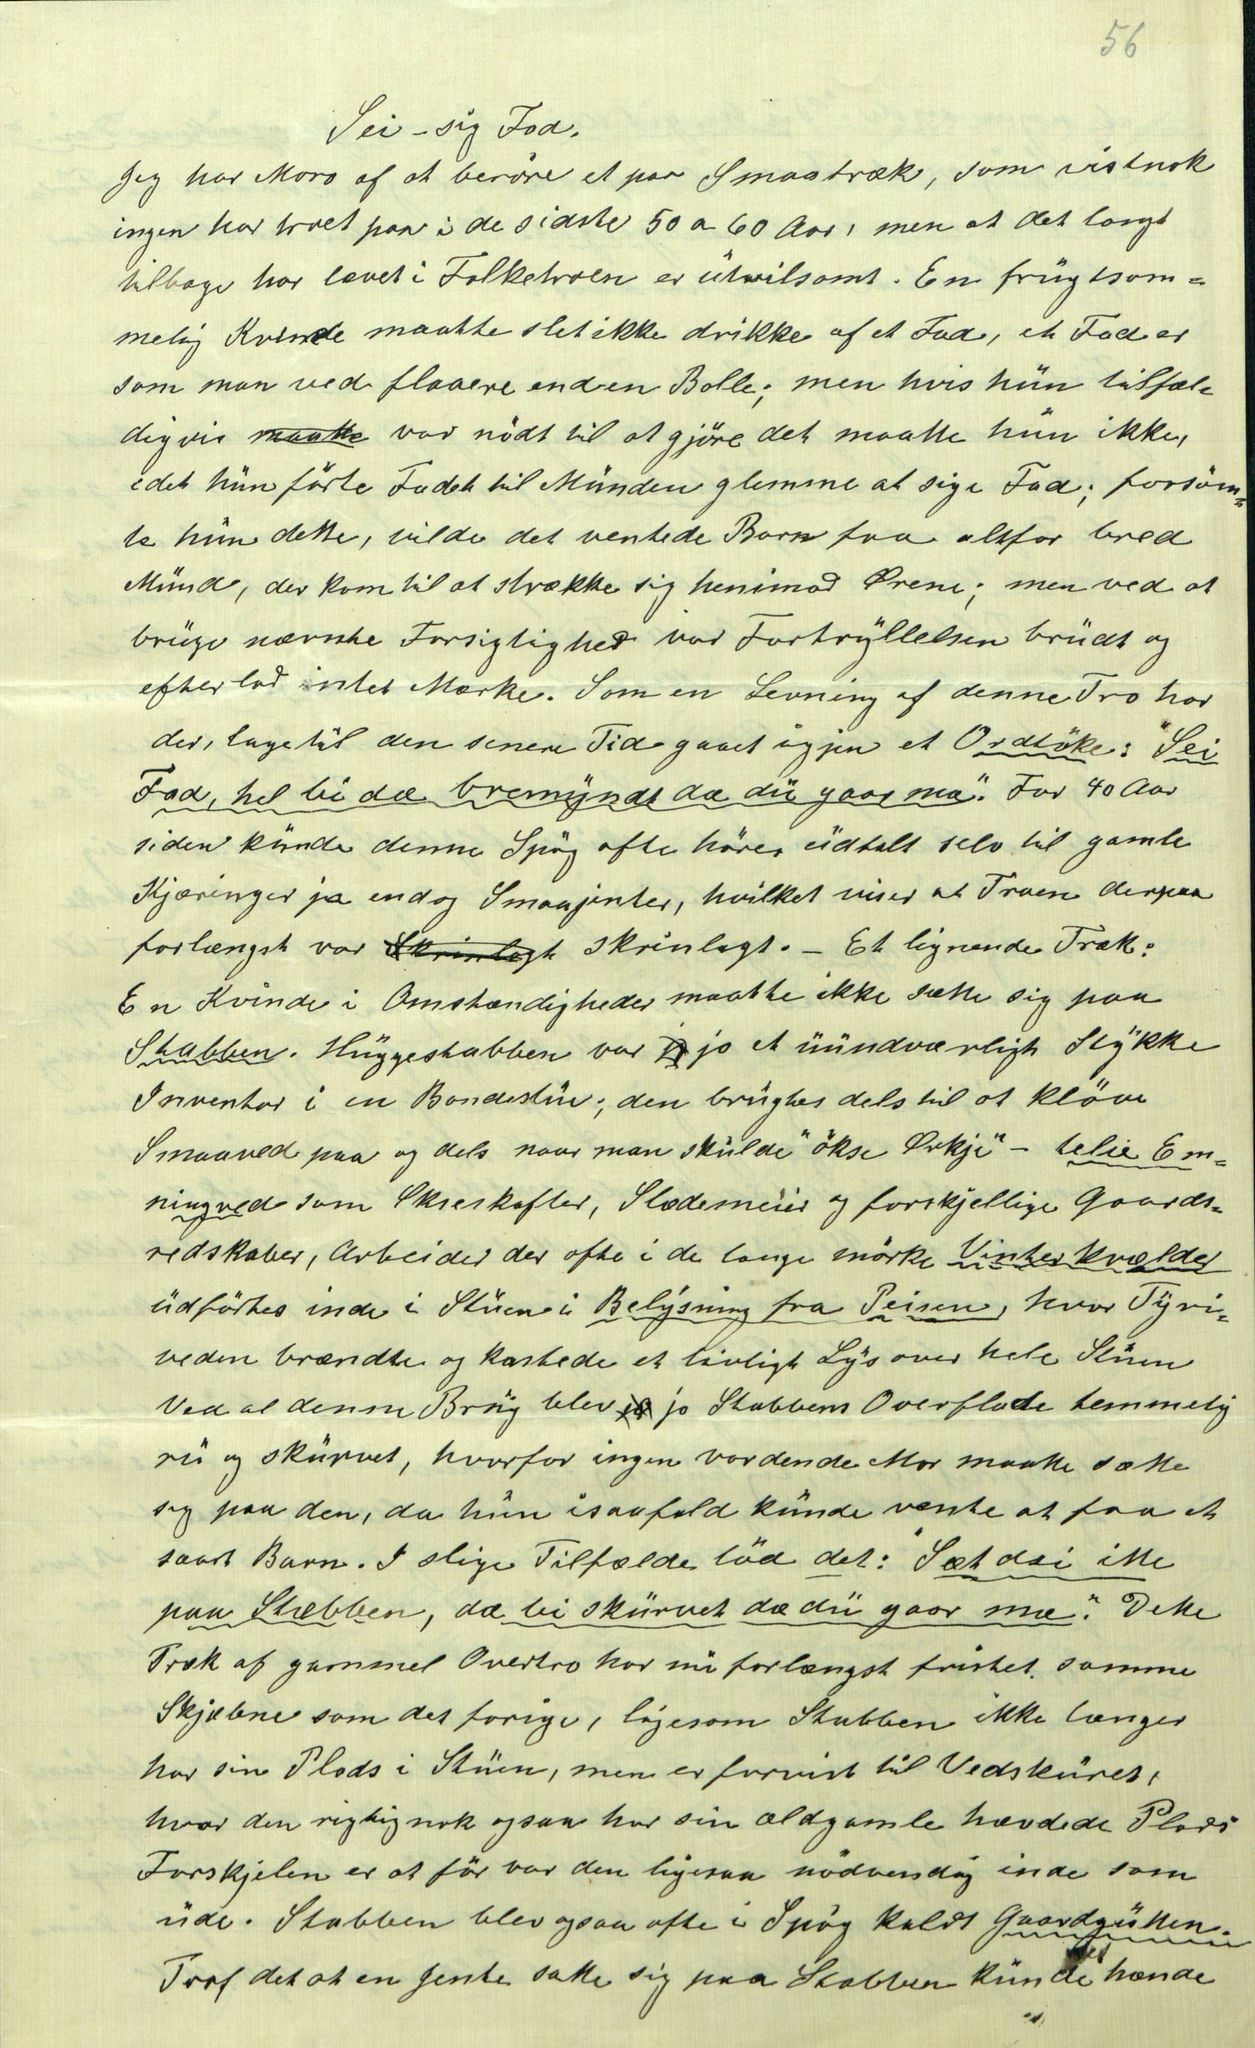 56
Sei - sig Fad.
Jeg har Moro af at beröre et par Smaatræk, som vistnok
ingen har troet paa i de sidste 50 a 60 Aar, men at det langt
tilbage har levet i Folketroen er utvilsomt. En frugtsom=
melig Kvinde maatte slet ikke drikke af et Fad, et Fad er
som man ved flaaere end en Bolle; men hvis hun tilfæl=
digvis maatte var nödt til at gjöre det maatte hun ikke,
idet hun förte Fadet til Munden glemme at sige Fad; forsöm=
te hun dette, vilde det ventede Barn faa altfor bred
Mund, der kom til at strække sig henimod Ørene; men ved at
bruge nævnte Forsigtighed var Fortryllelsen brudt og
efterlod intet Mærke. Som en Levning af denne Tro har
der, lage til den senere Tid gaaet igjen et Ordtöke: "Sei
Fad, hel bi dæ bremyndt dæ du gaar mæ". For 40 Aar
siden kunde denne Spög ofte höres udtalt selv til gamle
Kjæringer ja endog Smaajenter, hvilket viser at Troen derpaa
forlængst var Skrinlagt skrinlagt. - Et lignende Træk:
En Kvinde i Omstændigheder maatte ikke sætte sig paa
Stabben. Huggestabben var jo et uundværligt Stykke
Inventar i en Bondestue; den brugtes dels til at klöve
Smaaved paa og dels naar man skulde "ökse Ørkje" - telie Em=
ningved som Økseskafter, Slædemeier og forskjellige Gaards=
redskaber, Arbeider der ofte i de lange mörke Vinterkvælder
udförtes inde i Stuen i Belysning fra Peisen, hvor Tyri=
veden brændte og kastede et livligt Lys over hele Stuen
Ved al denne Brug blev jo Stabbens Overflade temmelig
ru og skurvet, hvorfor ingen vordende Mor maatte sætte
sig paa den, da hun isaafald kunde vente at faa et
saart Barn. I slige Tilfælde löd det: "Sæt dæi itte
paa Stæbben, dæ bi skurvet dæ du gaar mæ". Dette
Træk af gammel Overtro har nu forlængst fristet samme
Skjæbne som det forige, ligesom Stabben ikke længer
har sin Plads i Stuen, men er forvist til Vedskuret,
hvor den rigtignok ogsaa har sin ældgamle hævdede Plads
Forskjelen er at för var den ligesaa nödvendig inde som
ude. Stabben blev ogsaa ofte i Spög kaldt Gaardgutten.
Traf det at en Jente satte sig paa Stabben kunde hænde